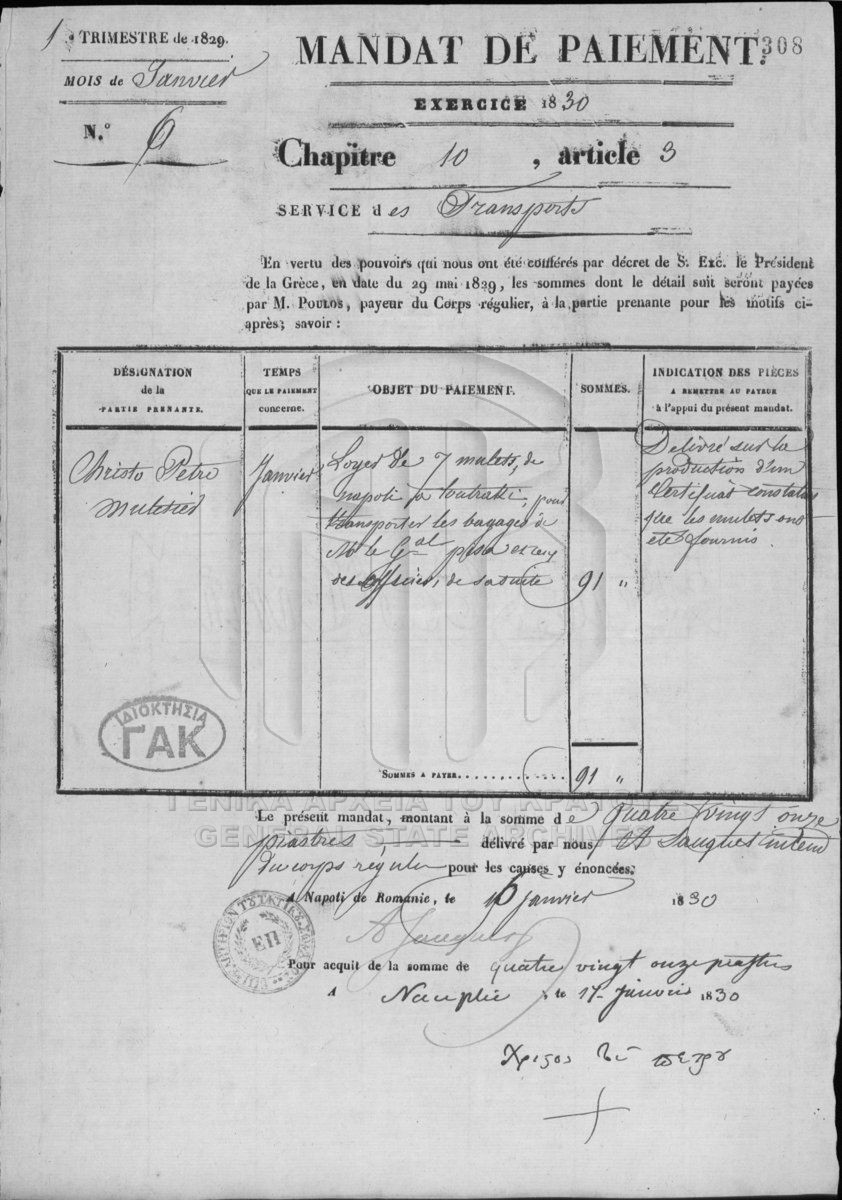 1 TRIMESTRE de 1829.
MOIS de Janvier
N.º 6
308
MANDAT DE PAIEMENT.
EXERCICE 1830
Chapitre 10, article 3
SERVICE des Transports
En vertu des pouvoirs qui nous ont été conférés par décret de S. Exc. le Président
de la Grèce, en date du 29 mai 1829, les sommes dont le détail suit seront payées
par M. POULOS, payeur du Corps régulier, à la partie prenante pour les motifs ci-
après; savoir :
DÉSIGNATION
de la
PARTIE PRENANTE.
TEMPS
QUE LE PAIEMENT
concerne.
OBJET DU PAIEMENT.
SOMMES.
INDICATION DES PIÈCES
A REMETTRE AU PAYEUR
à l'appui du présent mandat.
Christo Petro
Muletier
Janvier
Loyer de 7 mulets, de
napoli à Loutraki, pour
transporter les bagages de
Mr le Gal
des officiers, de sa suite
91 "
Delivré sur la
production d'un
Certificat constatant
que les mulets ont
été fournis.
ΙΔΙΟΚΤΗΣΙΑ
ΓΑΚ
SOMMES A PAYER............ 91 "
ΓΕΝΙΚΑ ΑΡΧΕΙΑ ΤΟΥ ΚΡΑΤΟΥΣ
GENERAL STATE ARCHIVES
Le présent mandat, montant à la somme de quatre vingt onze
piastres, délivré par nous
du corps régulier pour les causes y énoncées.
A Napoli de Romanie, le 16 janvier 1830
ΕΠ
Pour acquit de la somme de quatre vingt onze piastres
A Nauplie le 17 janvier 1830